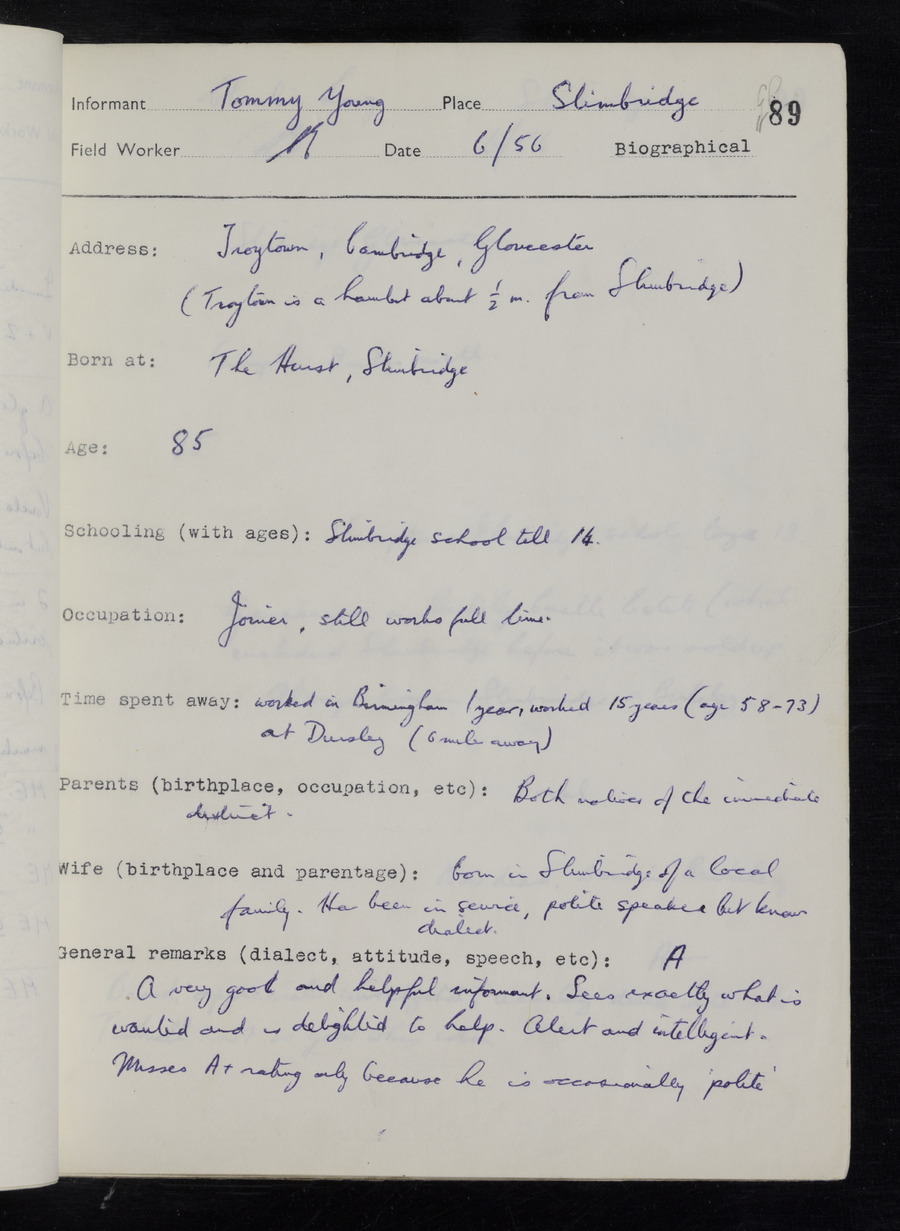 Informant Tommy Young Place Slimbridge 89
Field Worker Date 6/56 Biographical
Address: Troytown, Cambridge, Gloucester
(Troytown is a hamlet about ½ m. from Slimbridge)
Born at: The Hurst, Slimbridge
Age: 85
Schooling (with ages): Slimbridge school till 14.
Occupation: Joiner, still works full time.
Time spent away: worked in Birmingham 1 year, worked 15 years (age 58-73)
at Dursley (6 mile away)
Parents (birthplace, occupation, etc): Both natives of the immediate
district.
Wife (birthplace and parentage): born in Slimbridge of a local
family. Has been in service, polite speaker but knows
dialect.
General remarks (dialect, attitude, speech, etc): A
A very good and helpful informant. Sees exactly what is
wanted and is delighted to help. Alert and intelligent.
Misses A+ rating only because he is occasionally 'polite'